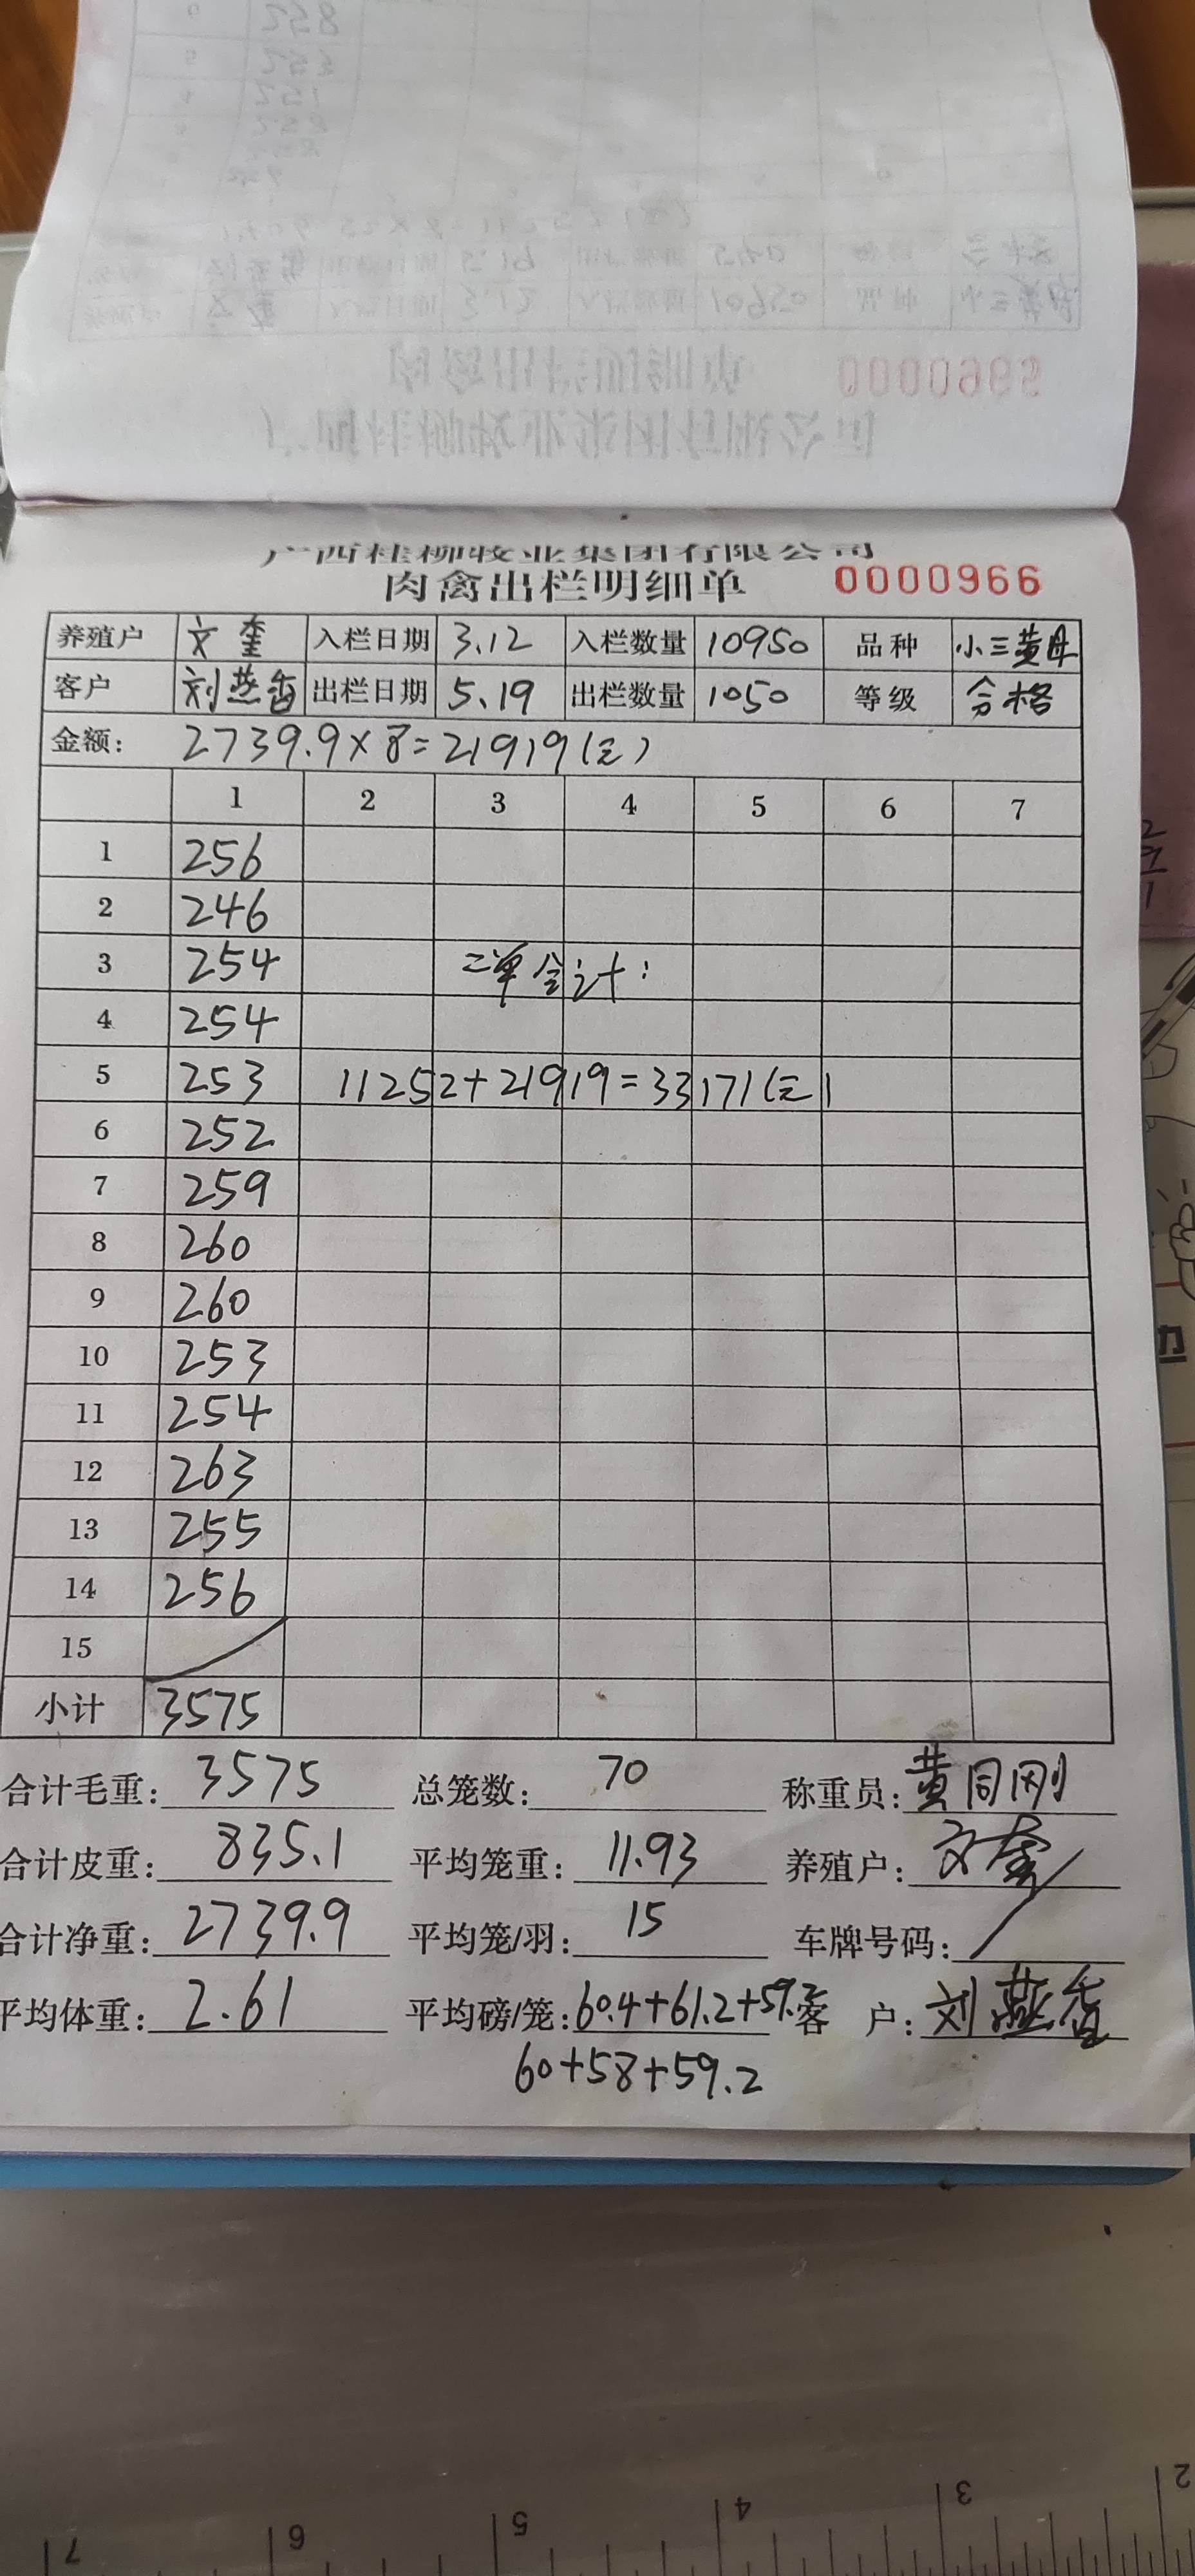 广西桂柳牧业集团有限公司
肉禽出栏明细单 0000966
养殖户 文奎 入栏日期 3.12 入栏数量 10950 品种 小三黄母
客户 刘燕香 出栏日期 5.19 出栏数量 1050 等级 合格
金额: 2739.9×8=21919(元)
1 2 3 4 5 6 7
1 256
2 246
3 254 二单合计:
4 254
5 253 11252+21919=33171(元)
6 252
7 259
8 260
9 260
10 253
11 254
12 263
13 255
14 256
15
小计 3575
合计毛重: 3575 总笼数: 70 称重员: 黄同刚
合计皮重: 835.1 平均笼重: 11.93 养殖户: 文奎
合计净重: 2739.9 平均笼/羽: 15 车牌号码:
平均体重: 2.61 平均磅/笼: 60.4+61.2+59.2 客 户: 刘燕香
60+58+59.2
7 6 5 4 3 2